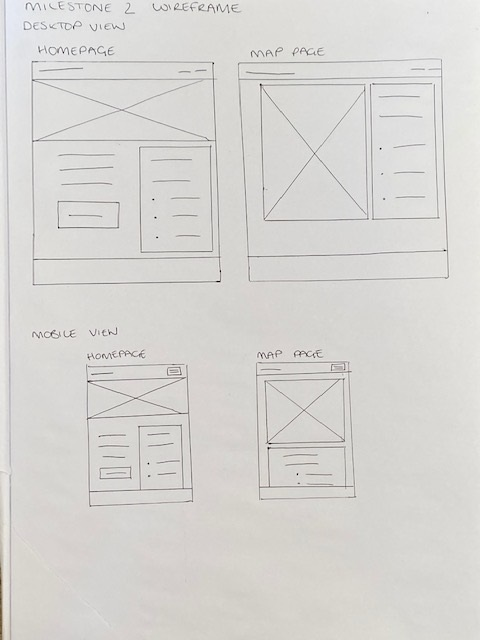 MILESTONE 2 WIREFRAME
DESKTOP VIEW
HOMEPAGE
MAP PAGE
MOBILE VIEW
HOMEPAGE
MAP PAGE